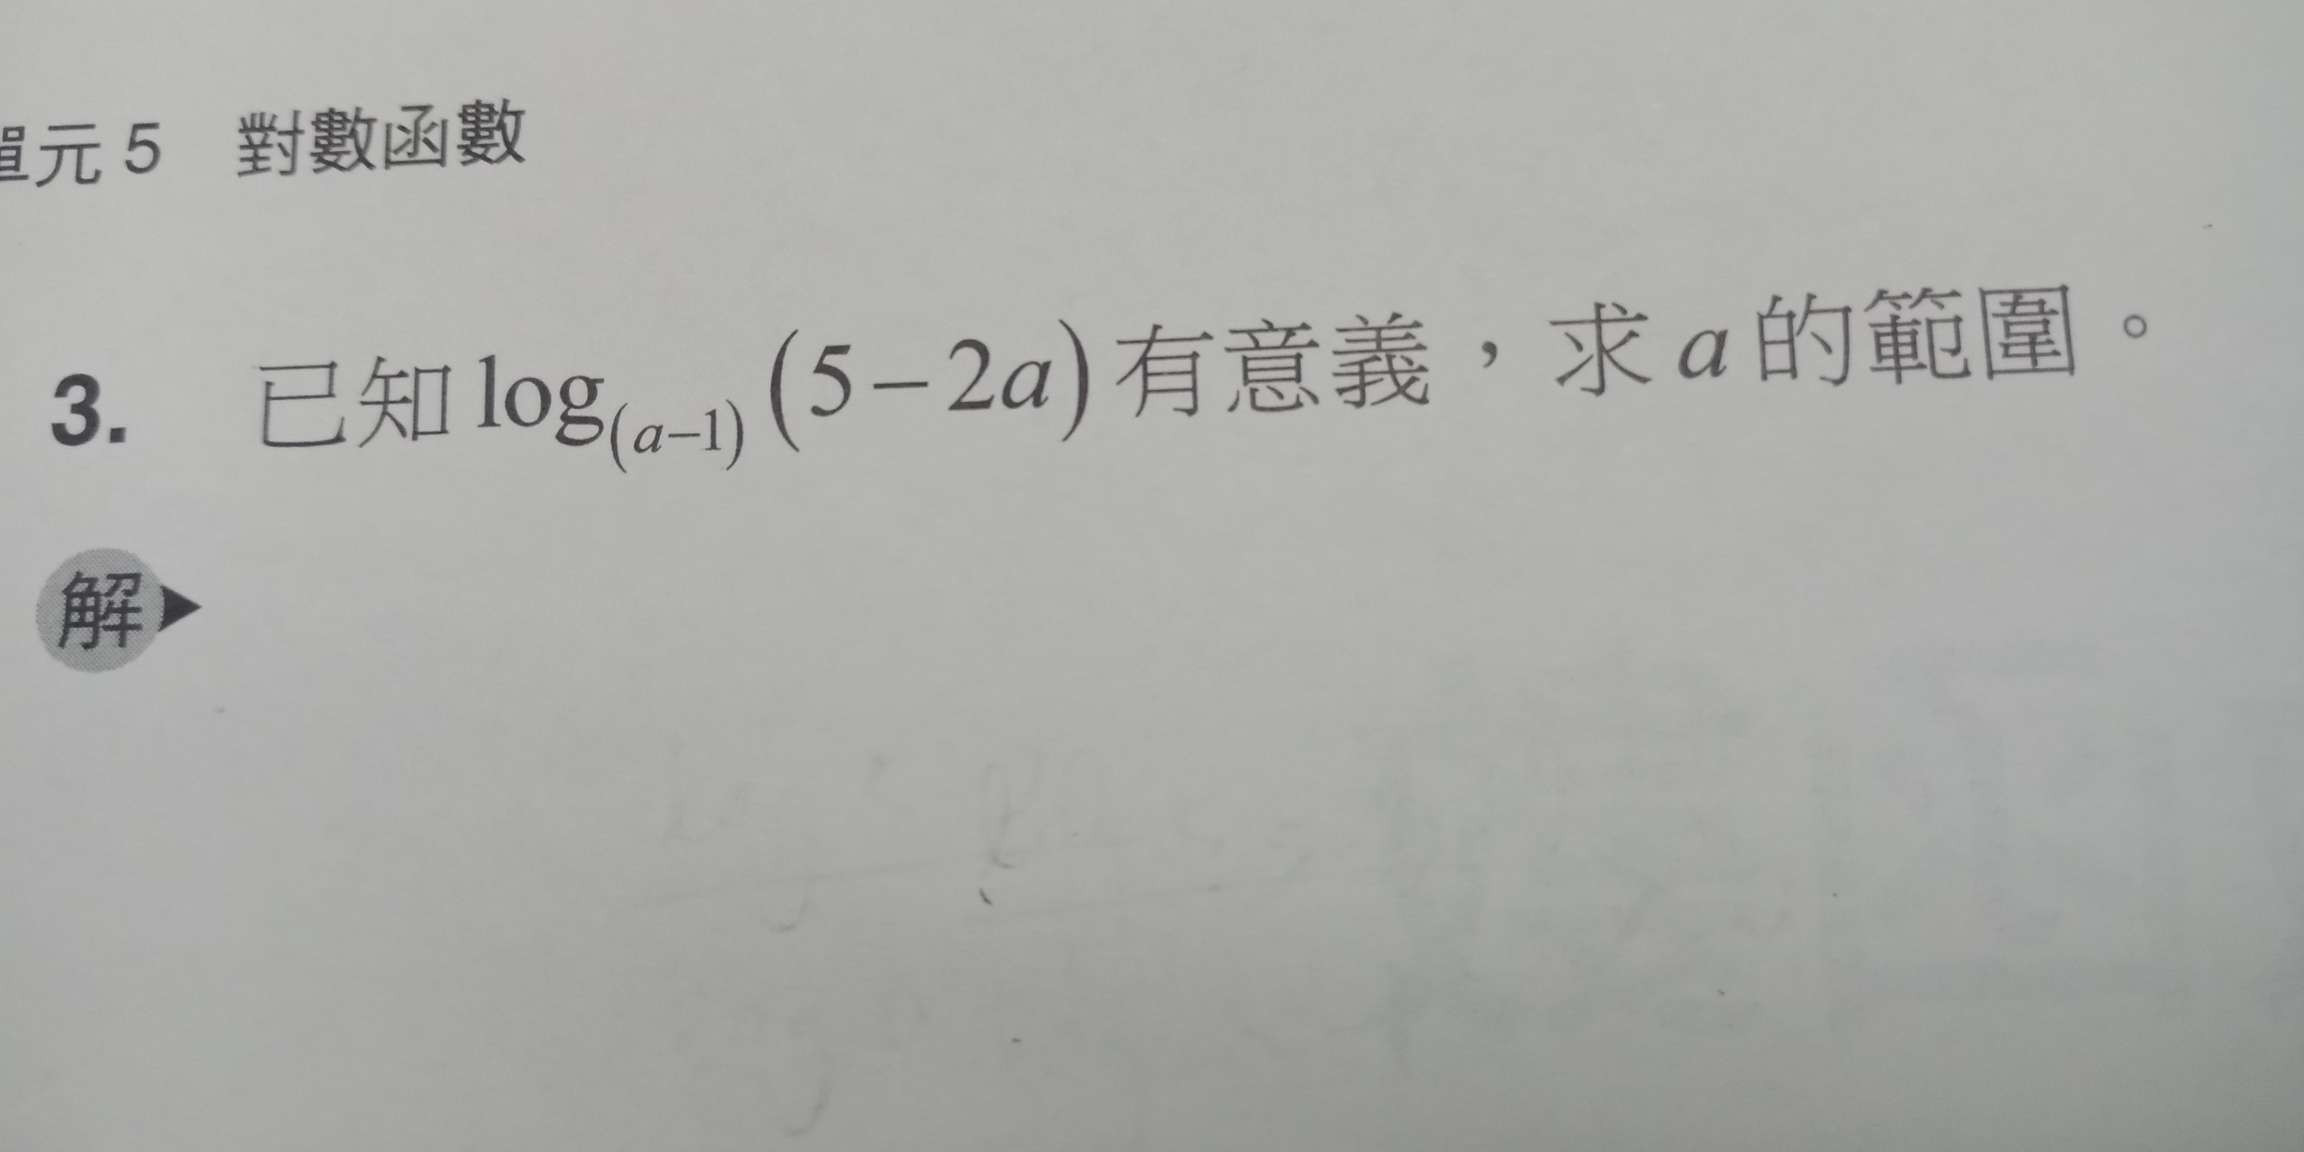 單元 5 對數函數
3. 已知 log₍ₐ₋₁₎(5−2a) 有意義，求 a 的範圍。
解